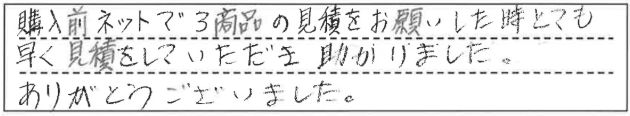 購入前ネットで3商品の見積をお願いした時とても
早く見積をしていただき助かりました。
ありがとうございました。